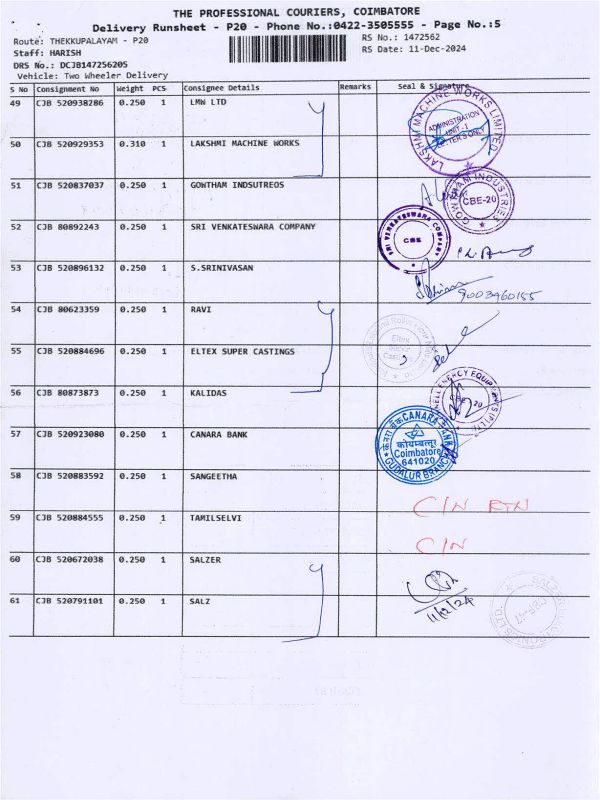 THE PROFESSIONAL COURIERS, COIMBATORE
Delivery Runsheet - P20 - Phone No.:0422-3505555 - Page No.:5
Route: THEKKUPALAYAM - P20
RS No.: 1472562
Staff: HARISH
RS Date: 11-Dec-2024
DRS No.: DCJB147256205
Vehicle: Two Wheeler Delivery
S No Consignment No Weight PCS Consignee Details Remarks Seal & Signature
49 CJB 520938286 0.250 1 LMW LTD
LAKSHMI MACHINE WORKS LIMITED
ADMINISTRATION
UNIT - I
LETTER'S ONLY
50 CJB 520929353 0.310 1 LAKSHMI MACHINE WORKS
51 CJB 520837037 0.250 1 GOWTHAM INDSUTREOS
GOWTHAM INDUSTRIES
CBE-20
52 CJB 80892243 0.250 1 SRI VENKATESWARA COMPANY
SRI VENKATESWARA COMPANY
CBE
53 CJB 520896132 0.250 1 S.SRINIVASAN
9003960155
54 CJB 80623359 0.250 1 RAVI
Eltex
55 CJB 520884696 0.250 1 ELTEX SUPER CASTINGS
56 CJB 80873873 0.250 1 KALIDAS
ENERGY EQUIPMENTS
CBE-20
57 CJB 520923080 0.250 1 CANARA BANK
केनरा बैंक CANARA BANK
कोयम्बत्तूर
Coimbatore
641020
GUDALUR BRANCH
58 CJB 520883592 0.250 1 SANGEETHA
C/N RTN
59 CJB 520884555 0.250 1 TAMILSELVI
C/N
60 CJB 520672038 0.250 1 SALZER
61 CJB 520791101 0.250 1 SALZ
11/12/24
SALZER ELECTRONICS LTD.